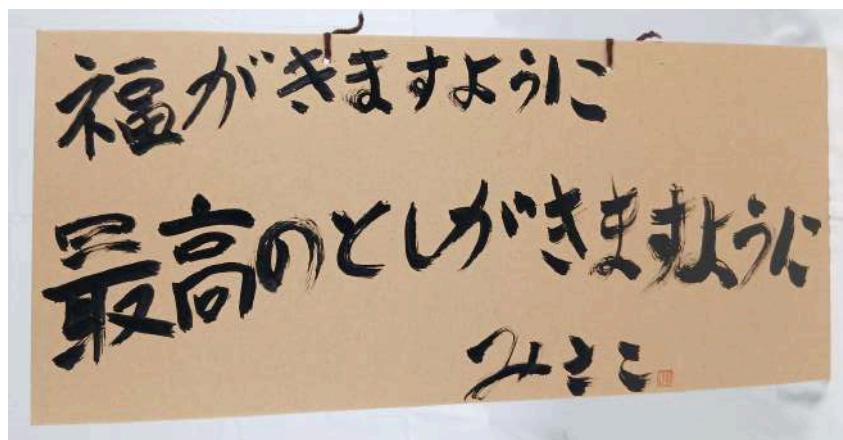 福がきますように
最高のとしがきますように
みさこ